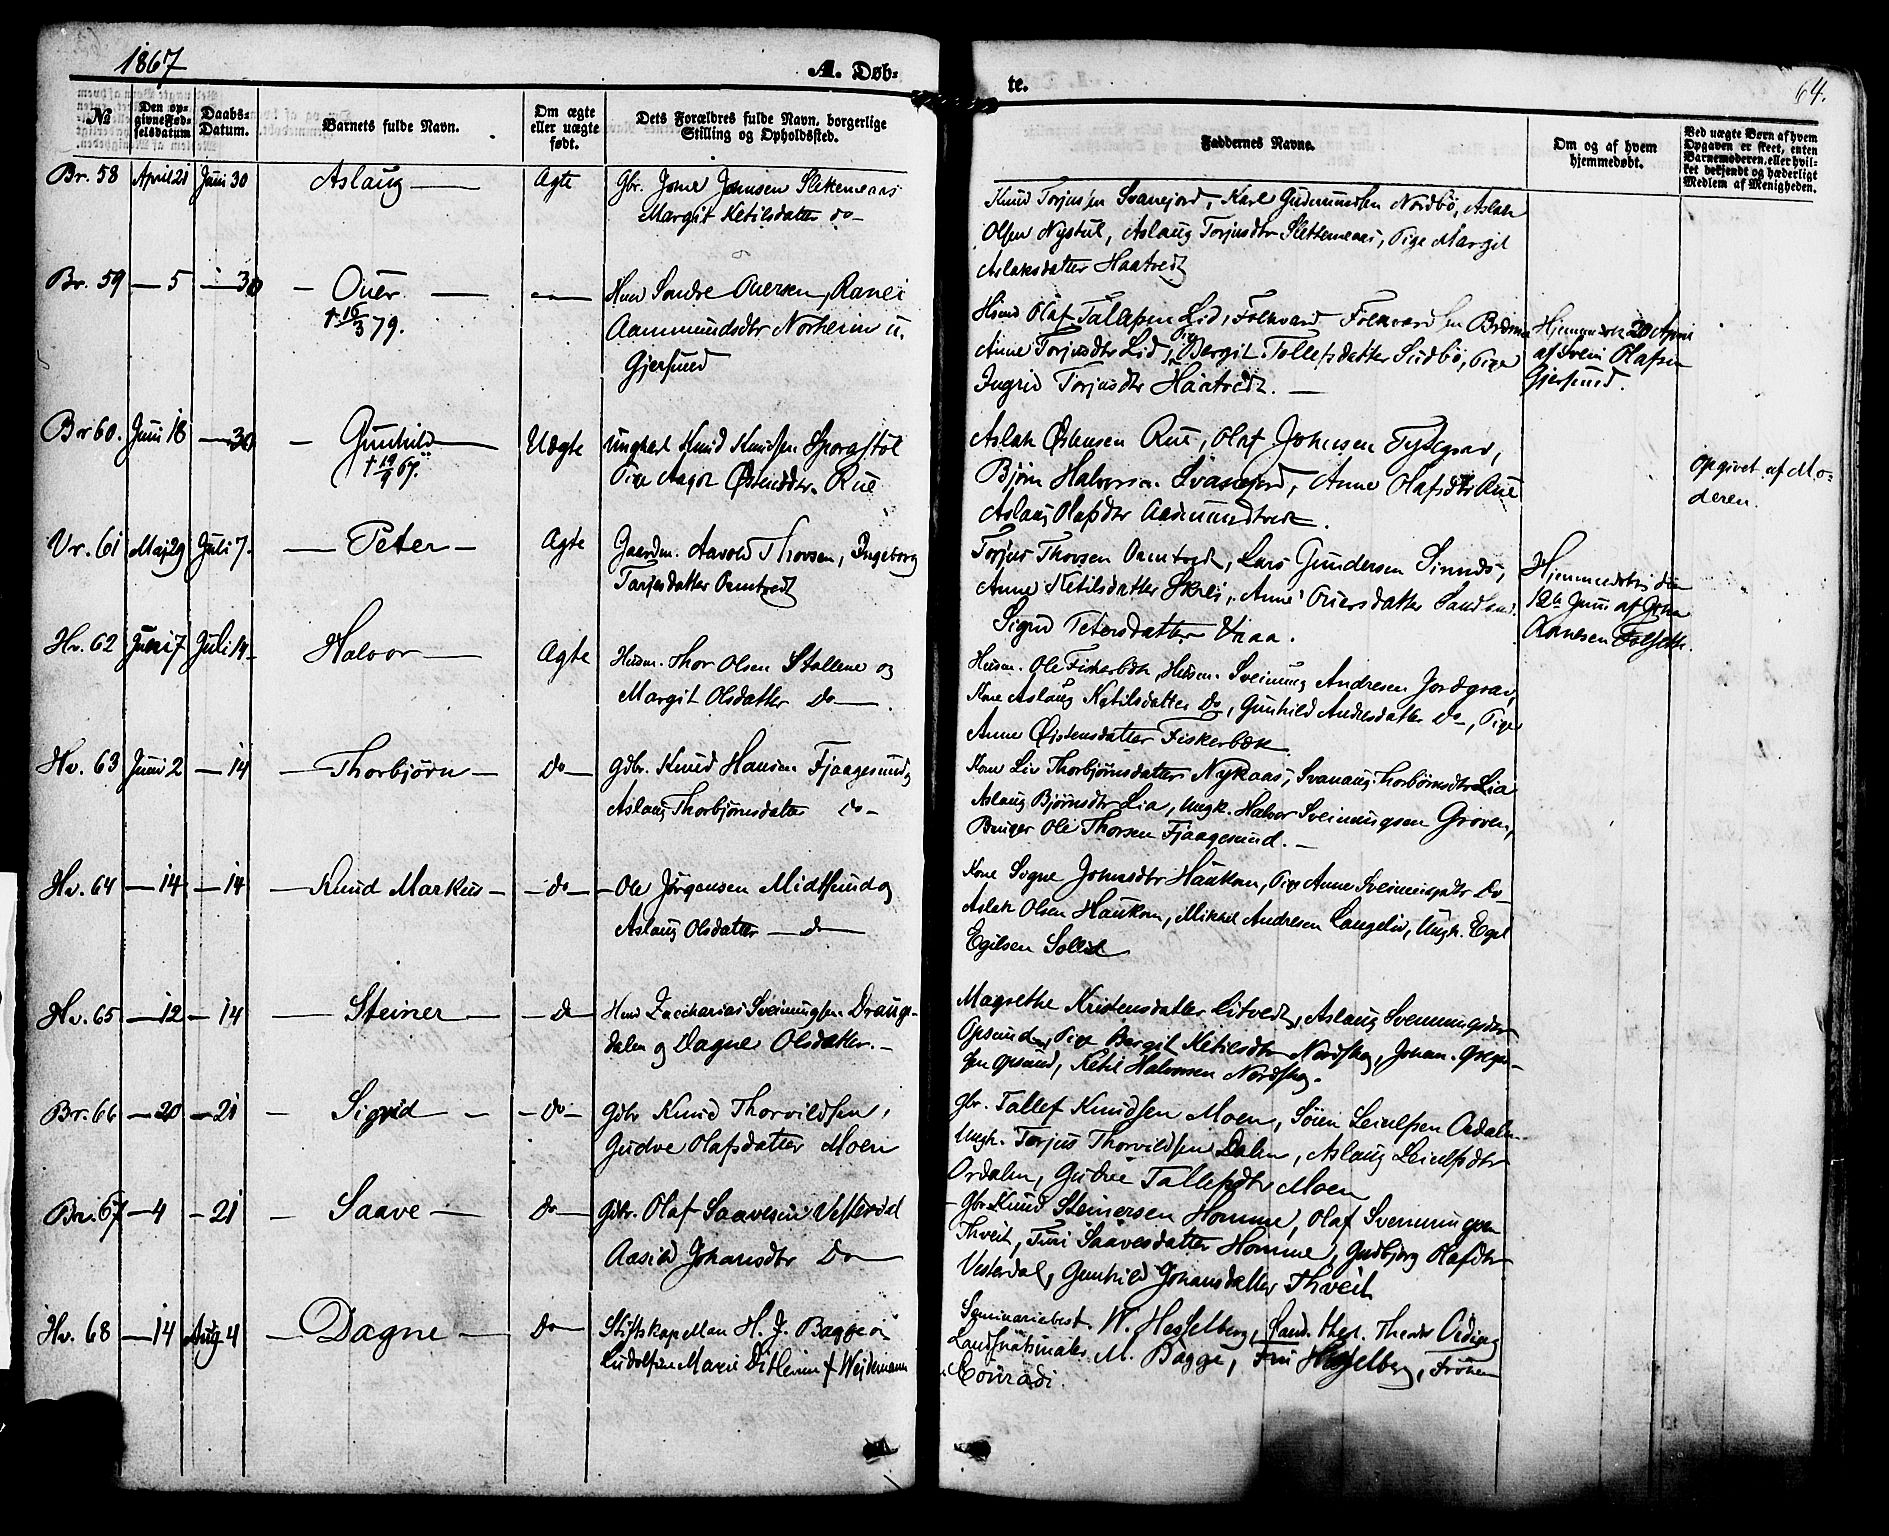 1867
A. Døb-
te.
64.
№
Den op-
givne Fød-
selsdatum
Daabs-
Datum.
Barnets fulde Navn.
Om ægte
eller uægte
født.
Dets Forældres fulde Navn, borgerlige
Stilling og Opholdssted.
Faddernes Navne.
Om og af hvem
hjemmedøbt.
Ved uægte Børn af hvem
Opgaven er skeet, enten
Barnemoderen, eller hvil-
ket bekjendt og hæderligt
Medlem af Menigheden.
Br. 58 April 21 Juni 30 Aslaug — Ægte
Gbr. Jone Jonsen
Margit Ketilsdatter do —
Knud Torjussen Svanejord, Karl Gudmundsen Nordbø, Aslak
Olsen Nystul, Aslaug Torjusdtr Slettemeaas, Pige Margit
Aslaksdatter Haatvedt
Br. 59 — 5 — 30 — Over — —
† 16/3 79.
Hmd Sondre Oversen, Ranei
Aammundsdtr Norheim u.
Gjersund
Olaf Lid, Folkvard
Anne Torjusdtr Lid, Pige Bergit Tollefsdatter Sudbø, Pige
Ingrid Torjusdtr Haatvedt. —
Hjemmedøbt 20 April
af Svein Olafsen
Gjersund.
Br 60. Juni 18 — 30 — Gunhild — Uægte
† 19/9 67.
Ungkarl Knud Knudsen
Pige Aagot Rue
Aslak Østensen Rue, Olaf Johnsen
Bjørn Halvorsen Svanejord, Anne Olafsdtr Rue
Aslaug Olafsdtr
Opgivet af Mo-
deren.
Br. 61 Maj 29 Juli 7. — Peter — Ægte
Gaardm. Aavold Thorsen, Ingeborg
Tarjesdatter Omtvedt
Torjus Thorsen Omtvedt, Lars Gundersen Sinnes,
Anne Ketilsdatter Skrei, Anne Oversdatter
Sigrid Petersdatter Vraa.
Hjemmedøbt den
12te Juni af
Folseth.
Hv. 62 Juni 7 Juli 14 — Halvor — Ægte
Husm. Thor Olsen Stallene og
Margit Olsdatter Do —
Husm. Ole Fiskerbæk, Husm. Sveinung Andresen Jordgrav,
Kone Aslaug Ketilsdatter Do, Gunhild Andresdatter Do —, Pige
Anne Østensdatter Fiskerbæk
Hv. 63 Juni 2 — 14 — Thorbjørn — Do —
Gdbr. Knud Hansen Fjaagesund og
Aslaug Thorbjørnsdatter Do —
Kone Liv Thorbjørnsdatter Nykaas, Svanaug Thorbjørnsdtr Lia
Aslaug Bjørnsdtr Lia, Ungk. Halvor Sveinungsen Groven,
Bruger Ole Thorsen Fjaagesund. —
Hv. 64 — 14 — 14 — Knud Markus — Do —
Ole Jørgensen Midtsund og
Aslaug Olsdatter — Do —
Kone Signe Johnsdtr Haukom, Pige Anne Do —
Aslak Olsen Haukom, Mikkel Andresen Langeliv, Ungk. Egil
Egilsen Sollid
Hv. 65 — 12 — 14 — Steiner — Do
Hmd Zaccharias Sveinungsen Drauge-
dalen og Dagne Olsdatter. —
Magrethe Kristensdatter Litvedt, Aslaug
Opsund, Pige Bergit Ketilsdtr Nordskog, Johan
Opsund, Ketil Halvorsen Nordskog.
Br. 66 — 20 — 21 — Sigrid — Do —
Gdbr Knud Thorvildsen,
Gudve Olafsdatter Moen
Gbr. Tallef Knudsen Moen, Leiulfsen
Ungk. Torjus Thorvildsen Dalen, Aslaug Leiulfsdtr
Ordalen, Tallefsdtr Moen
Br. 67 — 4 — 21 — Saave — Do —
Gdbr. Olaf Saavesen Vesterdal
Aasild Johansdtr Do —
— Gbr Knud Steinersen Homme, Olaf Svenningsen
Thveit, Turi Saavesdatter Homme, Gudbjørg Olafsdtr
Vesterdal, Gunhild Johansdatter Thveit
Hv. 68 — 14 Aug 4 — Dagne — Do —
Stiftskapellan H. J. Bagge og
Marie f. Weidemann
Seminariebest. W. Hesselberg, Cand. theol. Theodor Ording
M. Bagge, Fru Hesselberg, Frøken
Conradi.